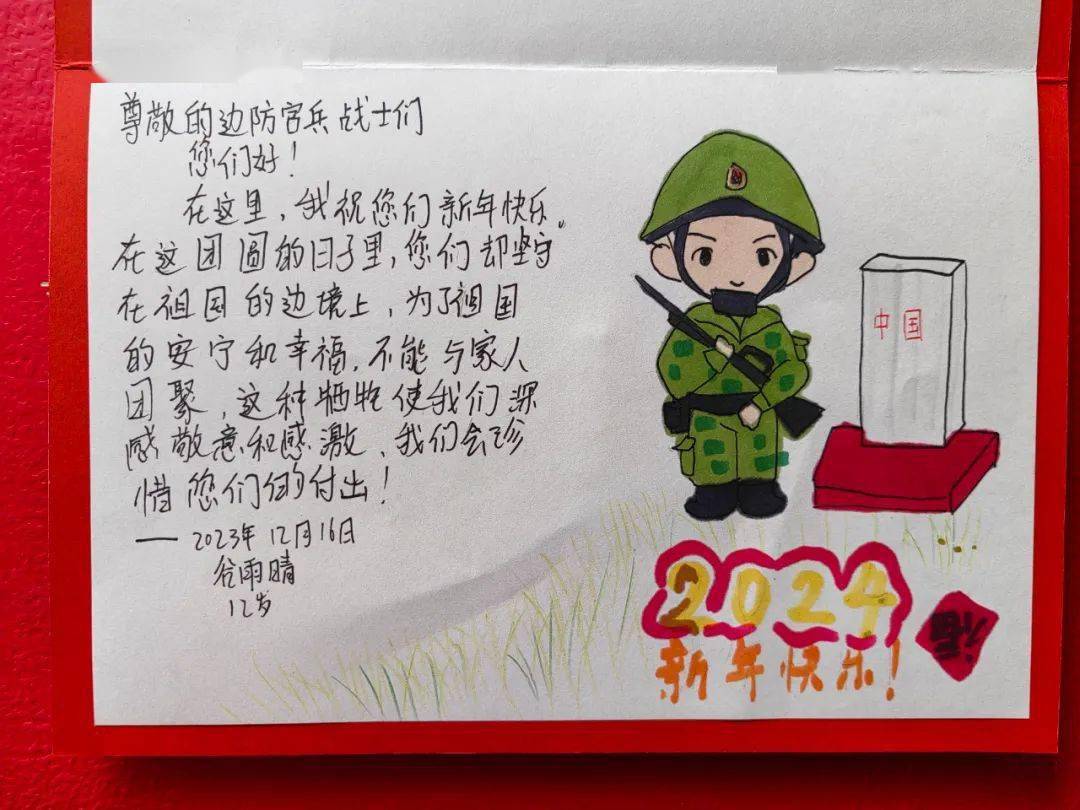 尊敬的边防官兵战士们
您们好！
在这里，我祝您们新年快乐。
在这团圆的日子里，您们却坚守
在祖国的边境上，为了祖国
的安宁和幸福，不能与家人
团聚，这种牺牲使我们深
感敬意和感激，我们会珍
惜您们的付出！
—2023年12月16日
谷雨晴
12岁
中国
2024
新年快乐！
福